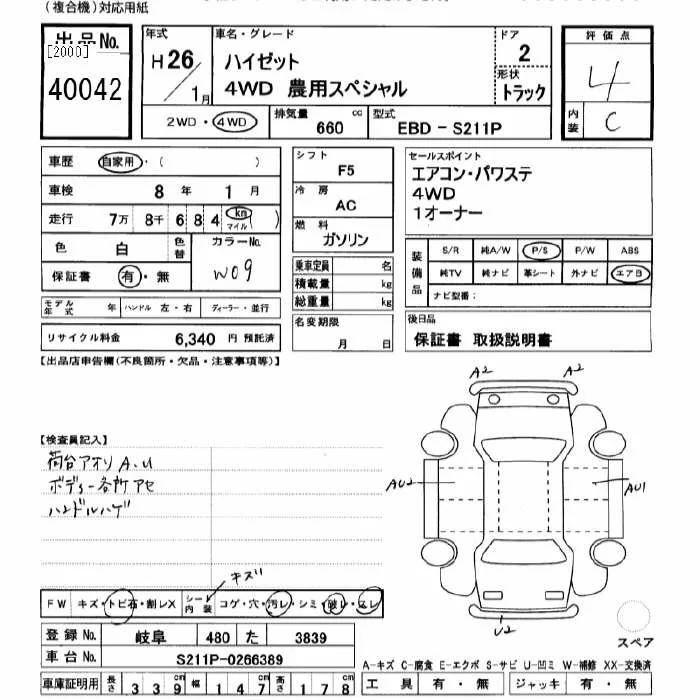 (複合機)対応用紙
出品No.
[2000]
40042
年式
H 26 / 1月
車名・グレード
ハイゼット
4WD 農用スペシャル
ドア
2
形状
トラック
2WD・4WD
排気量
660 cc
型式
EBD - S211P
評価点
4
内装
C
車歴 自家用・( )
車検 8 年 1 月
走行 7万 8千 6 8 4 km マイル )
色 白 色替
カラーNo.
W09
保証書 有・無
モデル年式 年 ハンドル 左・右 ディーラー・並行
リサイクル料金 6,340 円 預託済
シフト
F5
冷房
AC
燃料
ガソリン
乗車定員 名
積載量 kg
総重量 kg
名変期限
月 日
セールスポイント
エアコン・パワステ
4WD
1オーナー
装備品
S/R 純A/W P/S P/W ABS
純TV 純ナビ 革シート 外ナビ エアB
ナビ型番:
後日品
保証書 取扱説明書
【出品店申告欄(不良箇所・欠品・注意事項等)】
【検査員記入】
荷台アオリ A.U
ボディー各所アセ
ハンドルハゲ
キズ
A2 A2
AU2 AU1
U2
スペア
FW キズ・トビ石・割レX シート内装 コゲ・穴・汚レ・シミ・破レ・スレ
登録No. 岐阜 480 た 3839
車台No. S211P-0266389
車庫証明用 長さ 3 3 9 cm 幅 1 4 7 cm 高さ 1 7 8 cm
A-キズ C-腐食 E-エクボ S-サビ U-凹ミ W-補修 XX-交換済
工具 有・無 ジャッキ 有・無